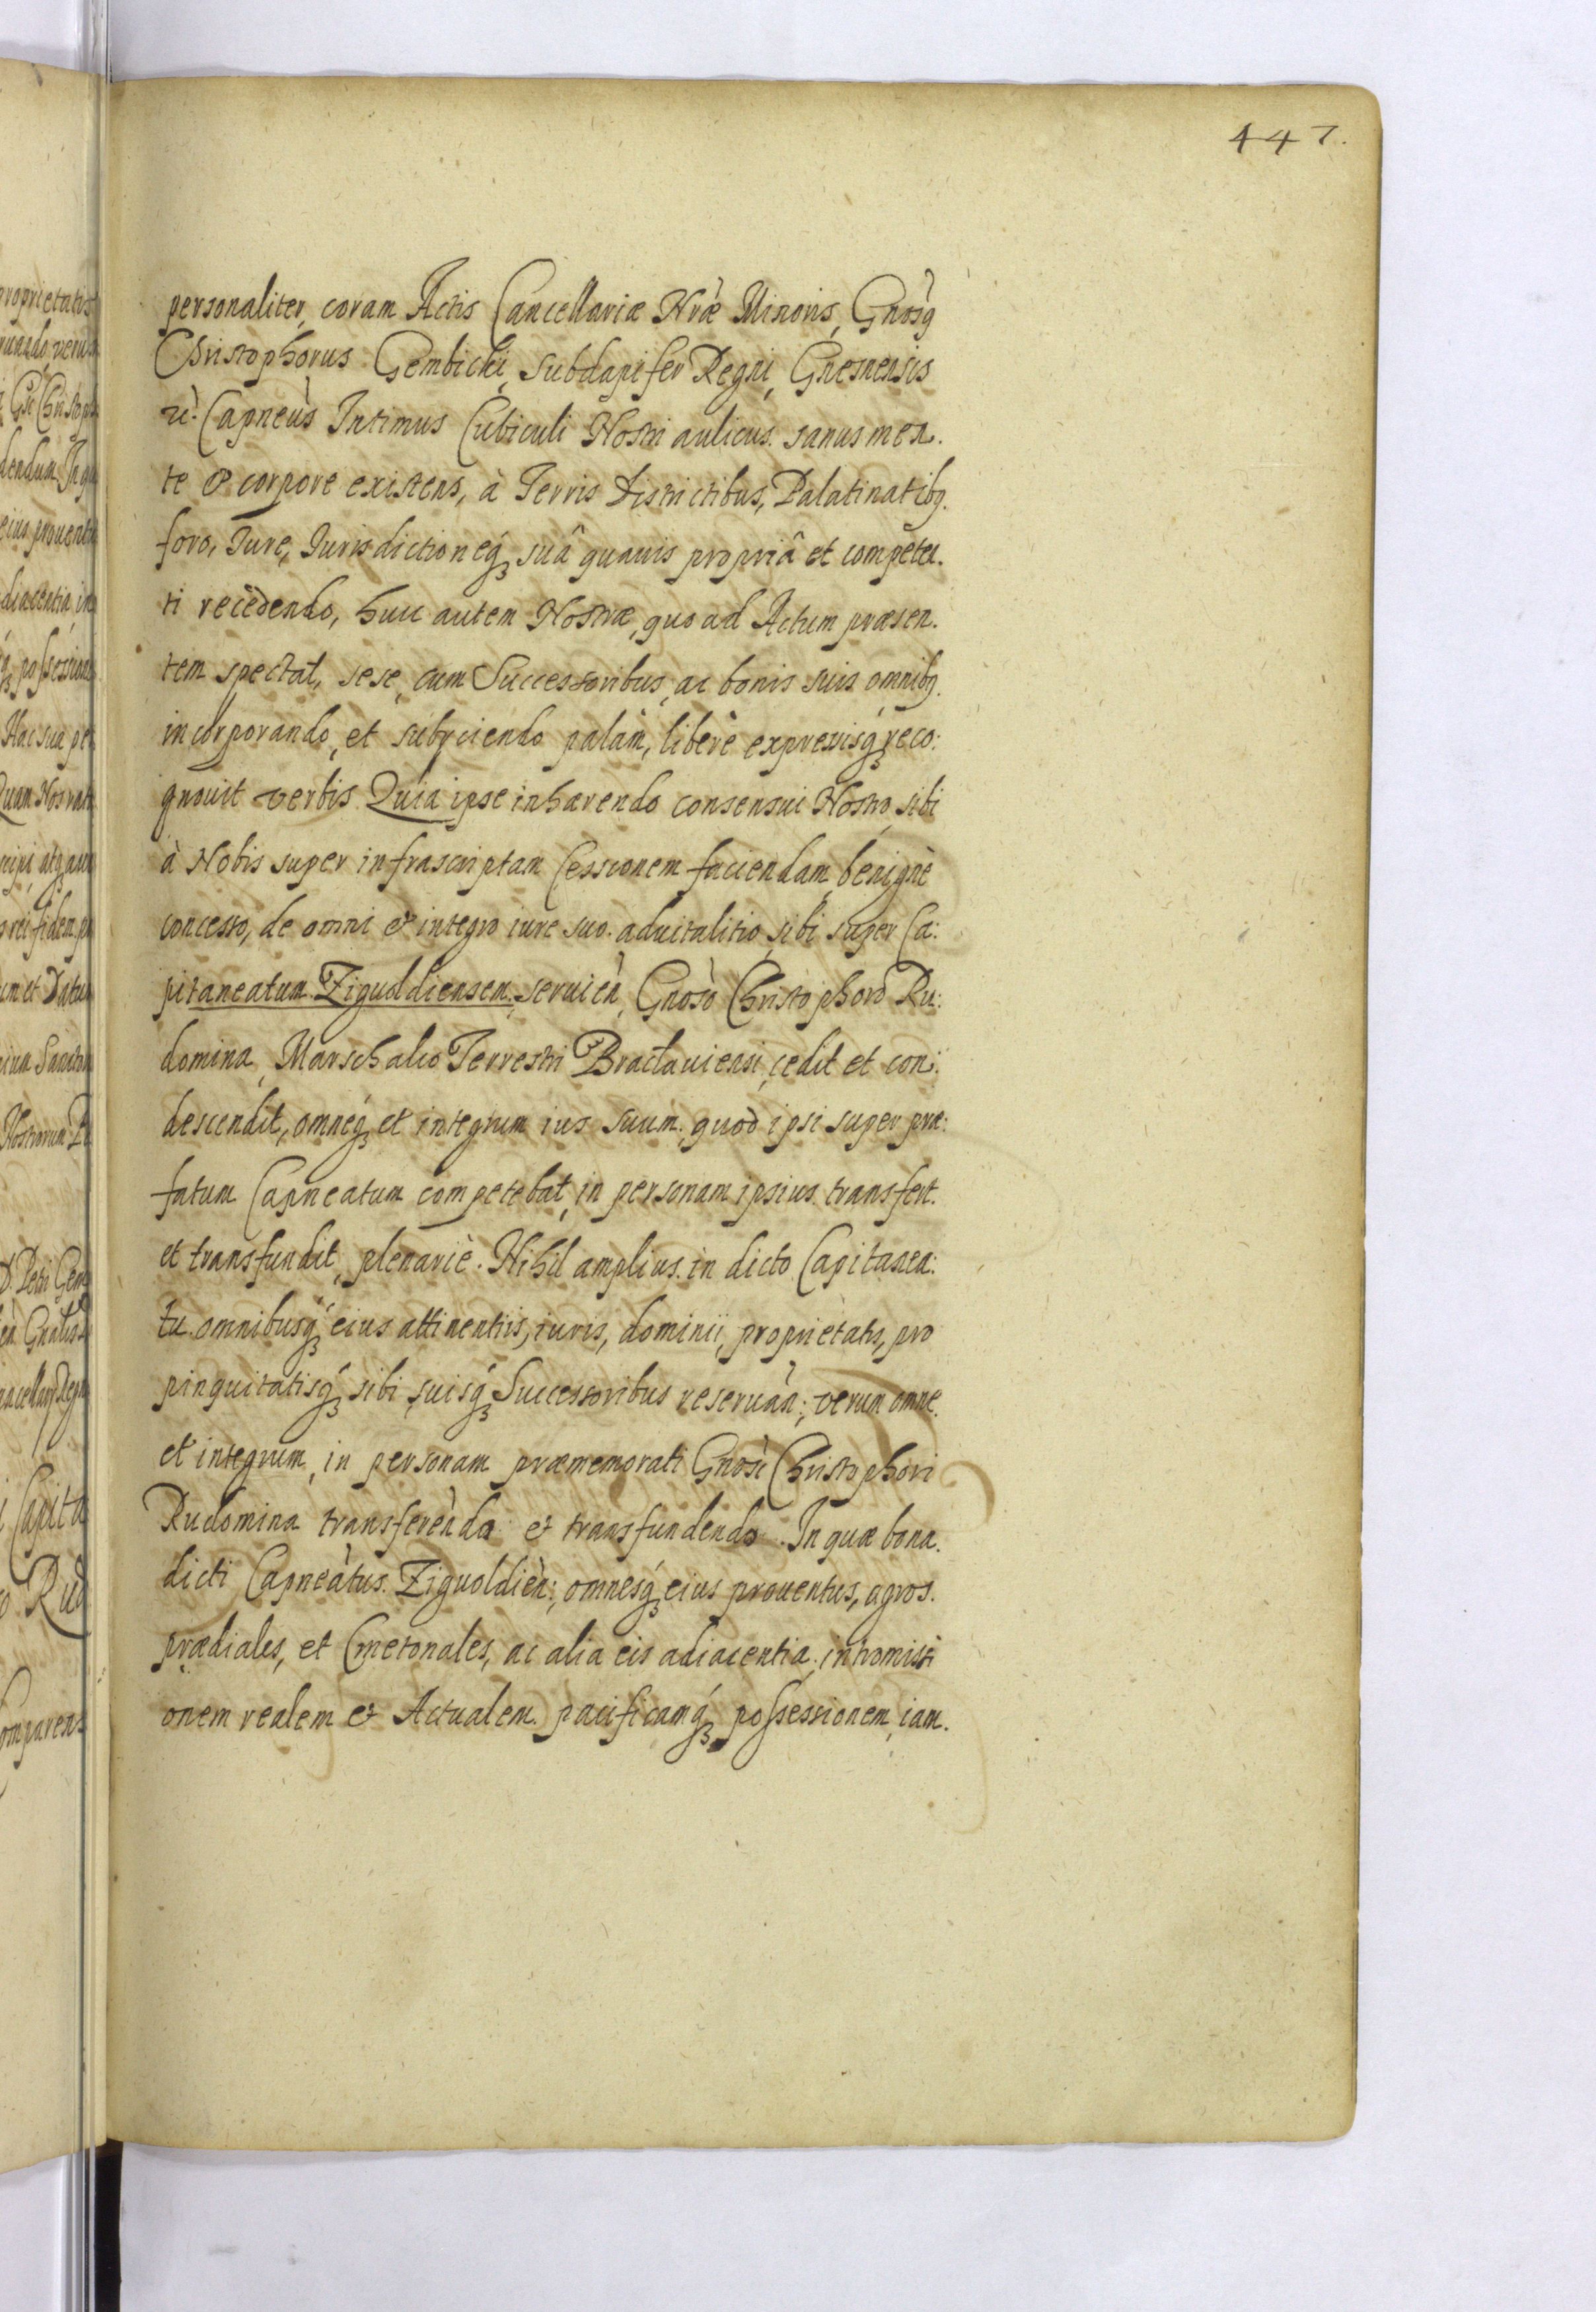 447.
personaliter, coram Actis Cancellariæ Nræ Minoris, Gnosq
Christophorus Gembicki, Subdapifer Regni, Gnesnensis
Capneus Intimus Cubiculi Nostri aulicus. sanus men.
te & corpore existens, à Terris Districtibus, Palatinatibq.
foro, Iure, Iurisdictioneq suâ quauis propriâ et competen.
ti recedendo, huic autem Nostræ, quo ad Actum præsen.
tem spectat, sese, cum Successoribus, ac bonis suis omnibq.
incorporando, et subijciendo palàm, liberè expressisq reco:
gnouit verbis. Quia ipse inhærendo consensui Nostro, sibi
à Nobis super infrascriptam Cessionem faciendam, benignè
concesso, de omni & integro iure suo. aduitalitio, sibi super Ca:
pitaneatum Ziguoldiensem, seruien, Gnoso Christophoro Ru:
domina, Marschalco Terrestri Braclauiensi, cedit et con:
descendit, omneq et integrum ius suum, quod ipsi super præ:
fatum Capneatum competebat, in personam ipsius. transfert.
et transfundit, plenariè. Nihil amplius. in dicto Capitanea:
tu. omnibusq eius attinentiis, iuris, dominii, proprietatis, pro
pinquitatisq sibi, suisq Successoribus reseruàn:, verum omne.
et integrum, in personam præmemorati Gnosi Christophori
Rudomina transferèndo & transfundendo. In quæ bona.
dicti Capneàtus. Ziguoldièn:, omnesq eius prouentus, agros.
prædiales, et Cmetonales, ac alia eis adiacentia, intromissi
onem realem & Actualem. pacificamq possessionem, iam.